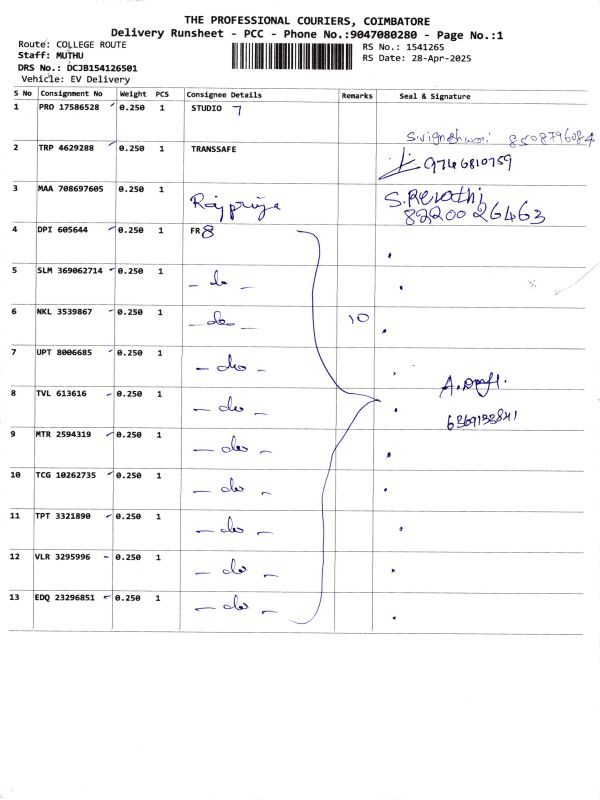 THE PROFESSIONAL COURIERS, COIMBATORE
Delivery Runsheet - PCC - Phone No.:9047080280 - Page No.:1
Route: COLLEGE ROUTE
RS No.: 1541265
Staff: MUTHU
RS Date: 28-Apr-2025
DRS No.: DCJB154126501
Vehicle: EV Delivery
S No Consignment No Weight PCS Consignee Details Remarks Seal & Signature
1 PRO 17586528 0.250 1 STUDIO 7
S.vigneshwari 8508796084
2 TRP 4629288 0.250 1 TRANSSAFE
9746810759
3 MAA 708697605 0.250 1 Rajpriya S.Revathi
8220026463
4 DPI 605644 0.250 1 FR8
5 SLM 369062714 0.250 1 - do -
6 NKL 3539867 0.250 1 - do - 10
7 UPT 8006685 0.250 1 - do -
8 TVL 613616 0.250 1 - do -
6369133841
9 MTR 2594319 0.250 1 - do -
10 TCG 10262735 0.250 1 - do -
11 TPT 3321890 0.250 1 - do -
12 VLR 3295996 0.250 1 - do -
13 EDQ 23296851 0.250 1 - do -